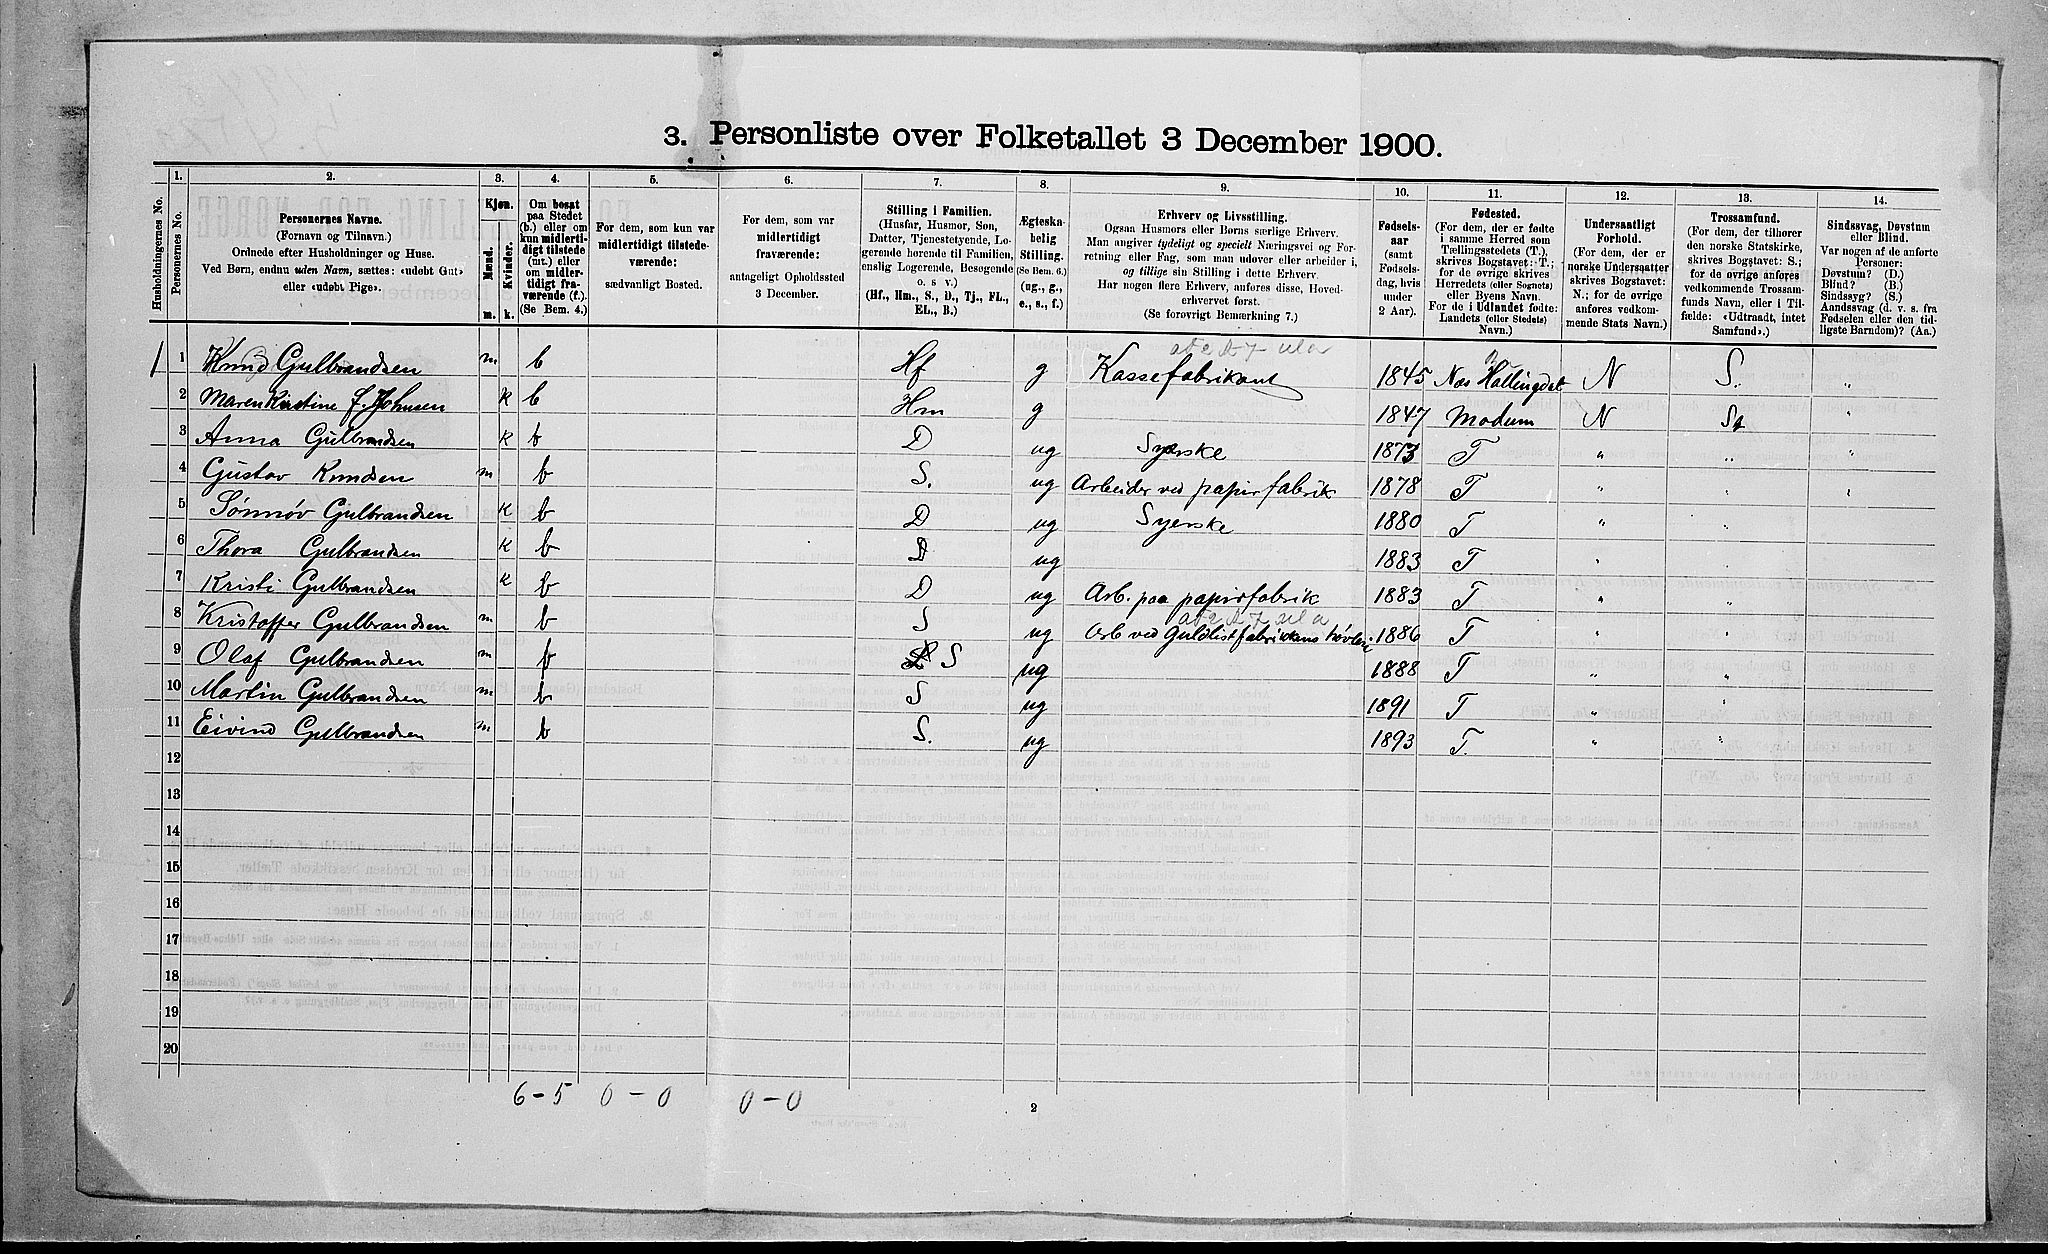 3. Personliste over Folketallet 3 December 1900.
Husholdningernes No.
1.
Personernes No.
2.
Personernes Navne.
(Fornavn og Tilnavn.)
Ordnede efter Husholdninger og Huse.
Ved Børn, endnu uden Navn, sættes: «udøbt Gut»
eller «udøbt Pige».
3.
Kjøn.
Mænd.
Kvinder.
m.
k.
4.
Om bosat
paa Stedet
(b.) eller om
kun midlerti-
digt tilstede
(mt.) eller
om midler-
tidigt fra-
værende (f.).
(Se Bem. 4.)
5.
For dem, som kun var
midlertidigt tilstede-
værende:
sædvanligt Bosted.
6.
For dem, som var
midlertidigt
fraværende:
antageligt Opholdssted
3 December.
7.
Stilling i Familien.
(Husfar, Husmor, Søn,
Datter, Tjenestetyende, Lo-
gerende hørende til Familien,
enslig Logerende, Besøgende
o. s v.)
(Hf., Hm., S., D., Tj., FL.,
EL., B.)
8.
Ægteska-
belig
Stilling.
(Se Bem. 6.)
(ug., g.,
e., s., f.)
9.
Erhverv og Livsstilling.
Ogsaa Husmors eller Børns særlige Erhverv.
Man angiver tydeligt og specielt Næringsvei og For-
retning eller Fag, som man udøver eller arbeider i,
og tillige sin Stilling i dette Erhverv.
Har nogen flere Erhverv, anføres disse, Hoved-
erhvervet først.
(Se forøvrigt Bemærkning 7.)
10.
Fødsels-
aar
(samt
Fødsels-
dag, hvis
under
2 Aar).
11.
Fødested.
(For dem, der er fødte
i samme Herred som
Tællingsstedets (T.),
skrives Bogstavet: T.;
for de øvrige skrives
Herredets (eller Sognets)
eller Byens Navn.
For de i Udlandet fødte:
Landets (eller Stedets)
Navn.)
12.
Undersaatligt
Forhold.
(For dem, der er
norske Undersaatter
skrives Bogstavet:
N.; for de øvrige
anføres vedkom-
mende Stats Navn.)
13.
Trossamfund.
(For dem, der tilhører
den norske Statskirke,
skrives Bogstavet: S.;
for de øvrige anføres
vedkommende Trossam-
funds Navn, eller i Til-
fælde: «Udtraadt, intet
Samfund».)
14.
Sindssvag, Døvstum
eller Blind.
Var nogen af de anførte
Personer:
Døvstum? (D.)
Blind? (B.)
Sindssyg? (S.)
Aandssvag (d. v. s. fra
Fødselen eller den tid-
ligste Barndom)? (Aa.)
1 1 Knud Gulbrandsen m b Hf g Kassefabrikant 1845 Næs Hallingdal N S. "
2 Maren Kirstine f. Johnsen k b Hm g 1847 Modum N S. "
3 Anna Gulbrandsen k b D ug Syerske 1873 T " " "
4 Gustav Knudsen m b S. ug Arbeider ved papirfabrik 1878 T " " "
5 Sønnøv Gulbrandsen k b D ug Syerske 1880 T " "
6 Thora Gulbrandsen k b D ug 1883 T " "
7 Kristi Gulbrandsen k b D ug Arb. paa papirfabrik 1883 T " "
8 Kristoffer Gulbrandsen m b S ug Arb ved Guldlistfabrikkens høvleri 1886 T " "
9 Olaf Gulbrandsen m b S ug 1888 T " "
10 Martin Gulbrandsen m b S ug 1891 T " "
11 Eivind Gulbrandsen m b S. ug 1893 T. " "
12
13
14
15
16
17
18
19
20
6-5 0-0 0-0
2